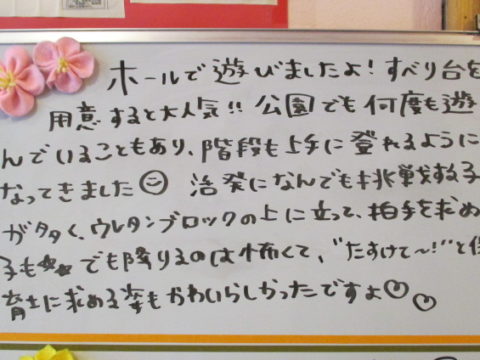 ホールで遊びましたよ！すべり台を
用意すると大人気!! 公園でも何度も遊
んでいることもあり、階段も上手に登れるように
なってきました 活発になんでも挑戦する子
が多く、ウレタンブロックの上に立って、拍手を求め
子も でも降りるのは怖くて、"たすけて〜!"と保
育士に求める姿もかわいらしかったですよ